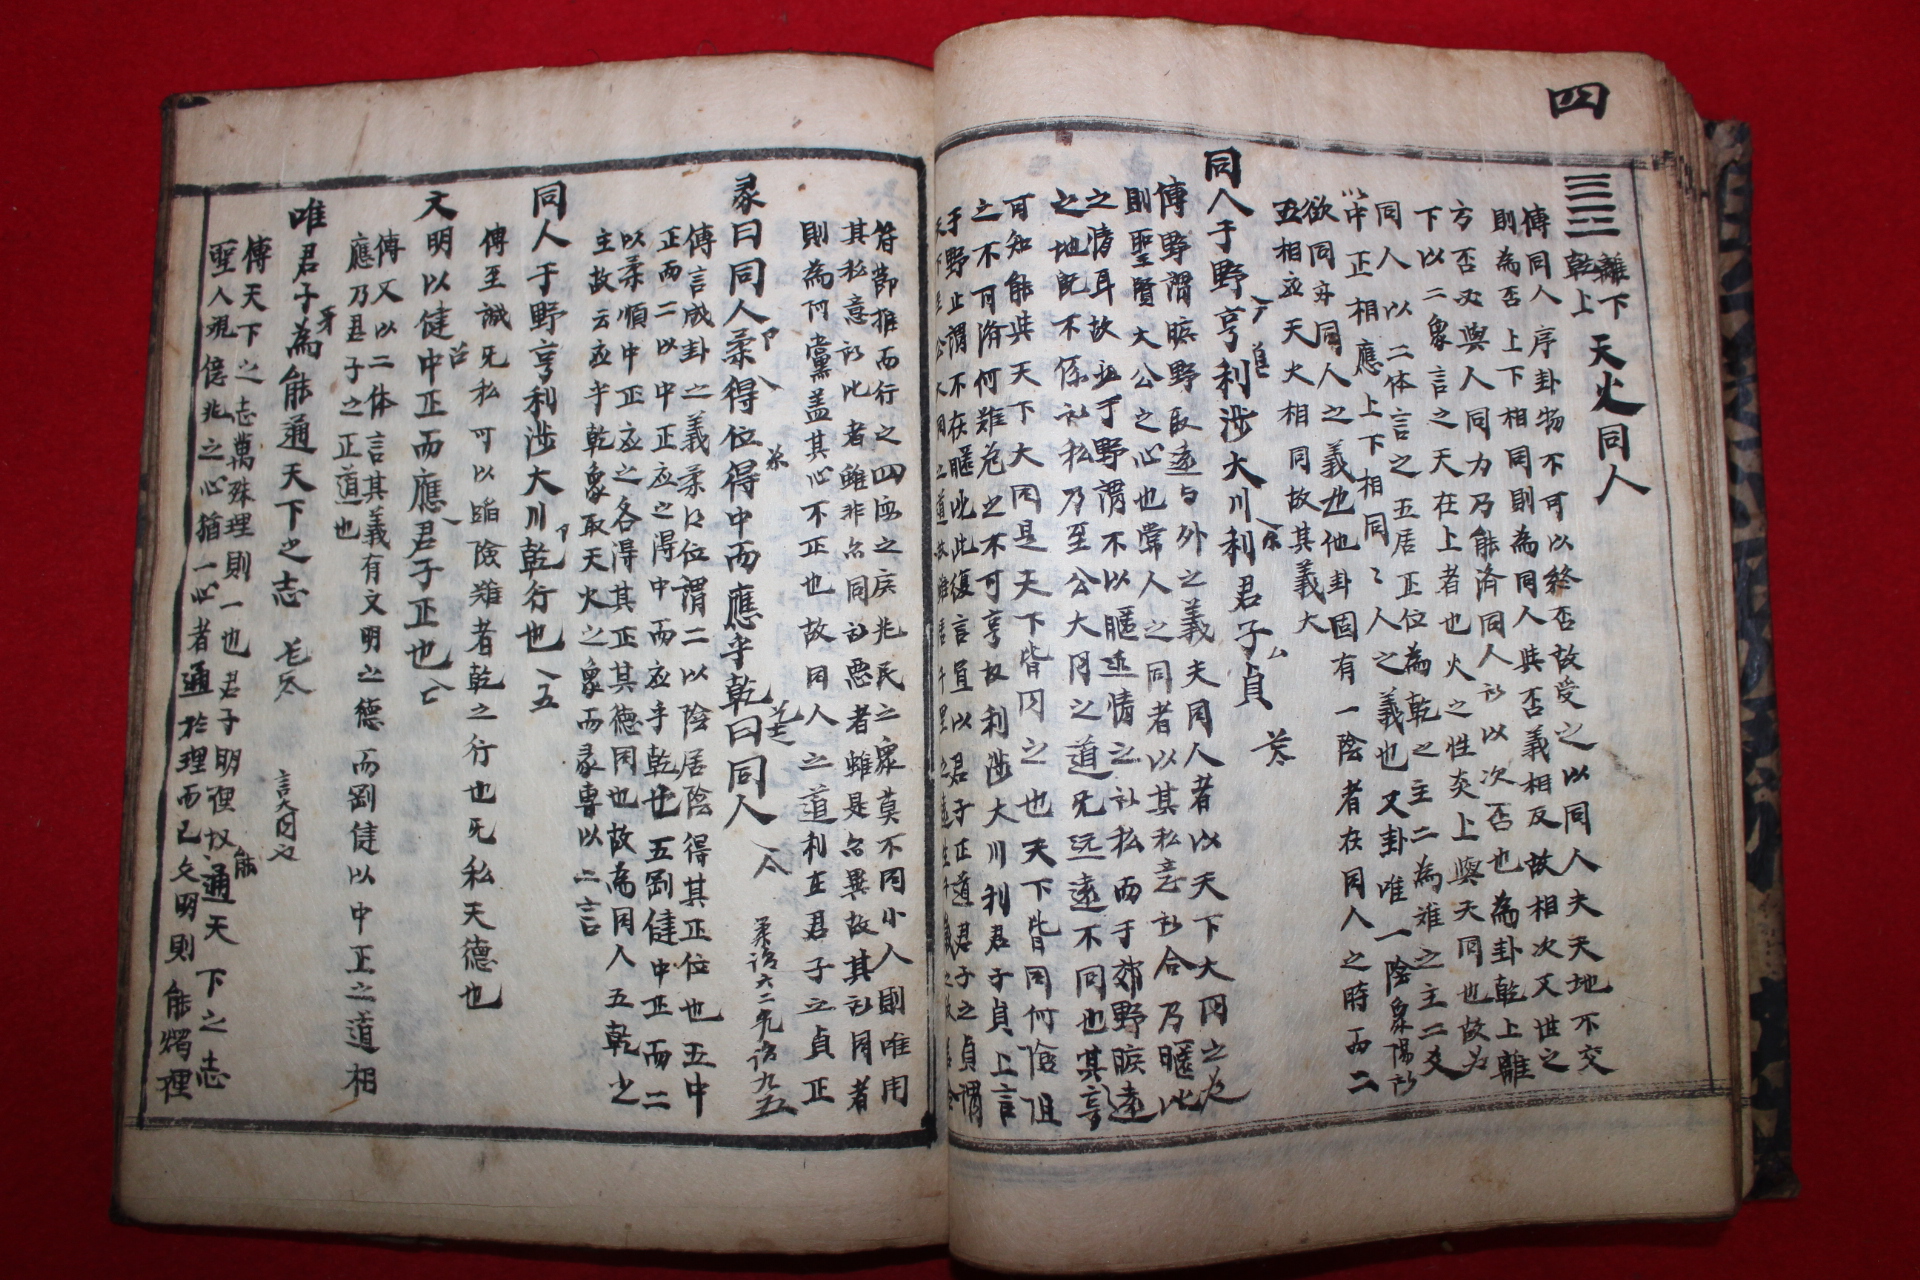 四
離下
乾上
天火同人
傳同人序卦物不可以終否故受之以同人夫天地不交
則為否上下相同則為同人與否義相反故相次又世之
方否必與人同力乃能済同人所以次否也為卦乾上離
下以二象言之天在上者也火之性炎上與天同也故為
同人以二体言之五居正位為乾之主二為離之主二爻
以中正相應上下相同〻人之義也又卦唯一陰衆陽所
欲同亦同人之義也他卦固有一陰者在同人之時而二
五相应天火相同故其義大
同人于野亨利涉大川利君子貞
傳野謂曠野取遠与外之義夫同人者以天下大同之道
則聖賢大公之心也常人之同者以其私意所合乃暱比
之情耳故必于野謂不以暱近情之所私而于郊野曠遠
之地既不係所私乃至公大同之道无远遠不同也其亨
可知能與天下大同是天下皆同之也天下皆同何險阻
之不可濟何難危之不可亨故利涉大川利君子貞上言
于野止謂不在暱比此復言宜以君子正道君子之貞謂
天下至公大同之道故雖居千里之遠生千歲之後若合
符節推而行之四海之廣兆民之衆莫不同小人則唯用
其私意所比者雖非亦同所惡者雖是亦異故其所同者
則為阿黨盖其心不正也故同人之道利在君子之貞正
彖曰同人柔得位得中而應乎乾曰同人
柔謂六二乾謂九五
傳言成卦之義柔得位謂二以陰居陰得其正位也五中
正而二以中正应之得中而应乎乾也五剛健中正而二
以柔順中正应之各得其正其德同也故為同人五乾之
主故云应乎乾象取天火之象而彖專以二言
同人于野亨利涉大川乾行也
傳至誠无私可以蹈險難者乾之行也无私天德也
文明以健中正而應君子正也
傳又以二体言其義有文明之德而剛健以中正之道相
應乃君子之正道也
唯君子為能通天下之志
言大同也
傳天下之志萬殊理則一也君子明理故能通天下之志
聖人視億兆之心猶一心者通於理而已文明則能燭理